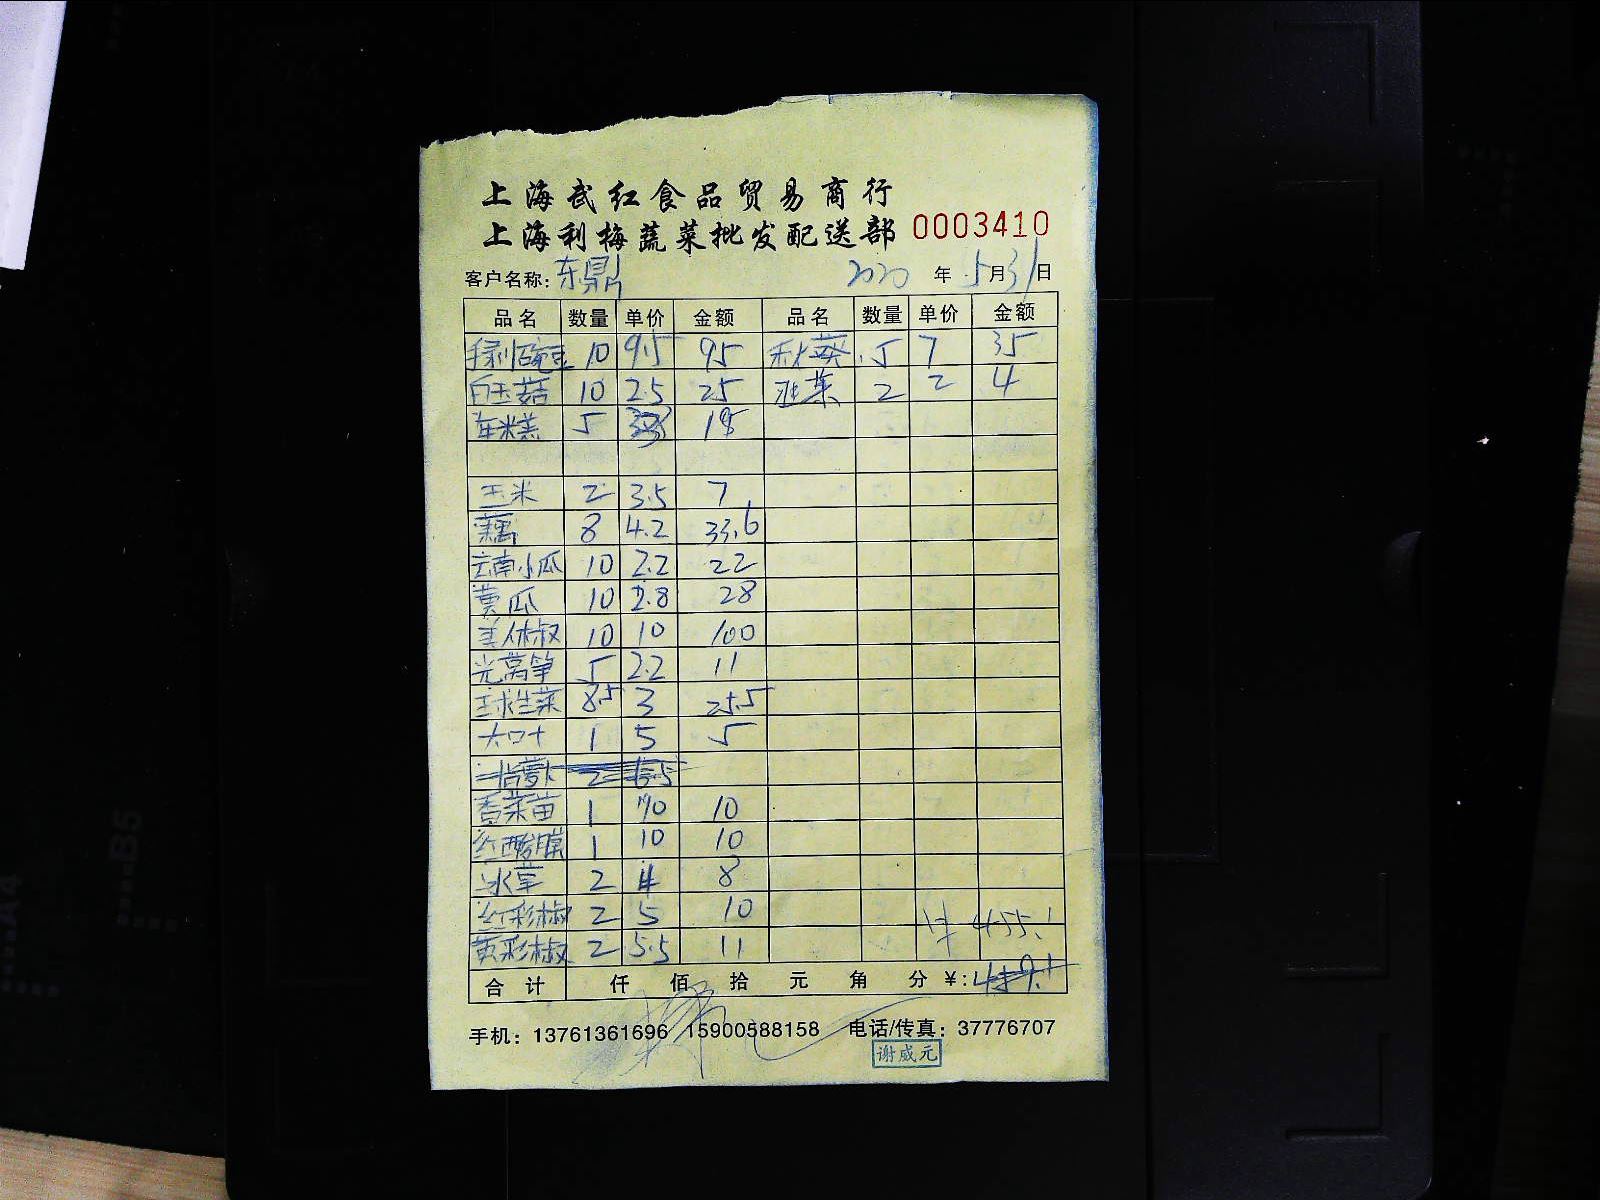 上海武红食品贸易商行
上海利梅蔬菜批发配送部 0003410
客户名称：东鼎 2020 年 5 月 31 日
品名 数量 单价 金额 品名 数量 单价 金额
手剥豌豆 10 9.5 95 秋葵 5 7 35
白玉菇 10 2.5 25 韭菜 2 2 4
年糕 5 15
玉米 2 3.5 7
藕 8 4.2 33.6
云南小瓜 10 2.2 22
黄瓜 10 2.8 28
美人椒 10 10 100
光莴笋 5 2.2 11
球生菜 8.5 3 25.5
大叶 1 5 5
2 6.5
香菜苗 1 10 10
红酸膜 1 10 10
冰草 2 4 8
红彩椒 2 5 10 455.1
黄彩椒 2 5.5 11
合计 仟 佰 拾 元 角 分 ¥: 459.1
手机：13761361696 15900588158 电话/传真：37776707
谢威元
A4
B5